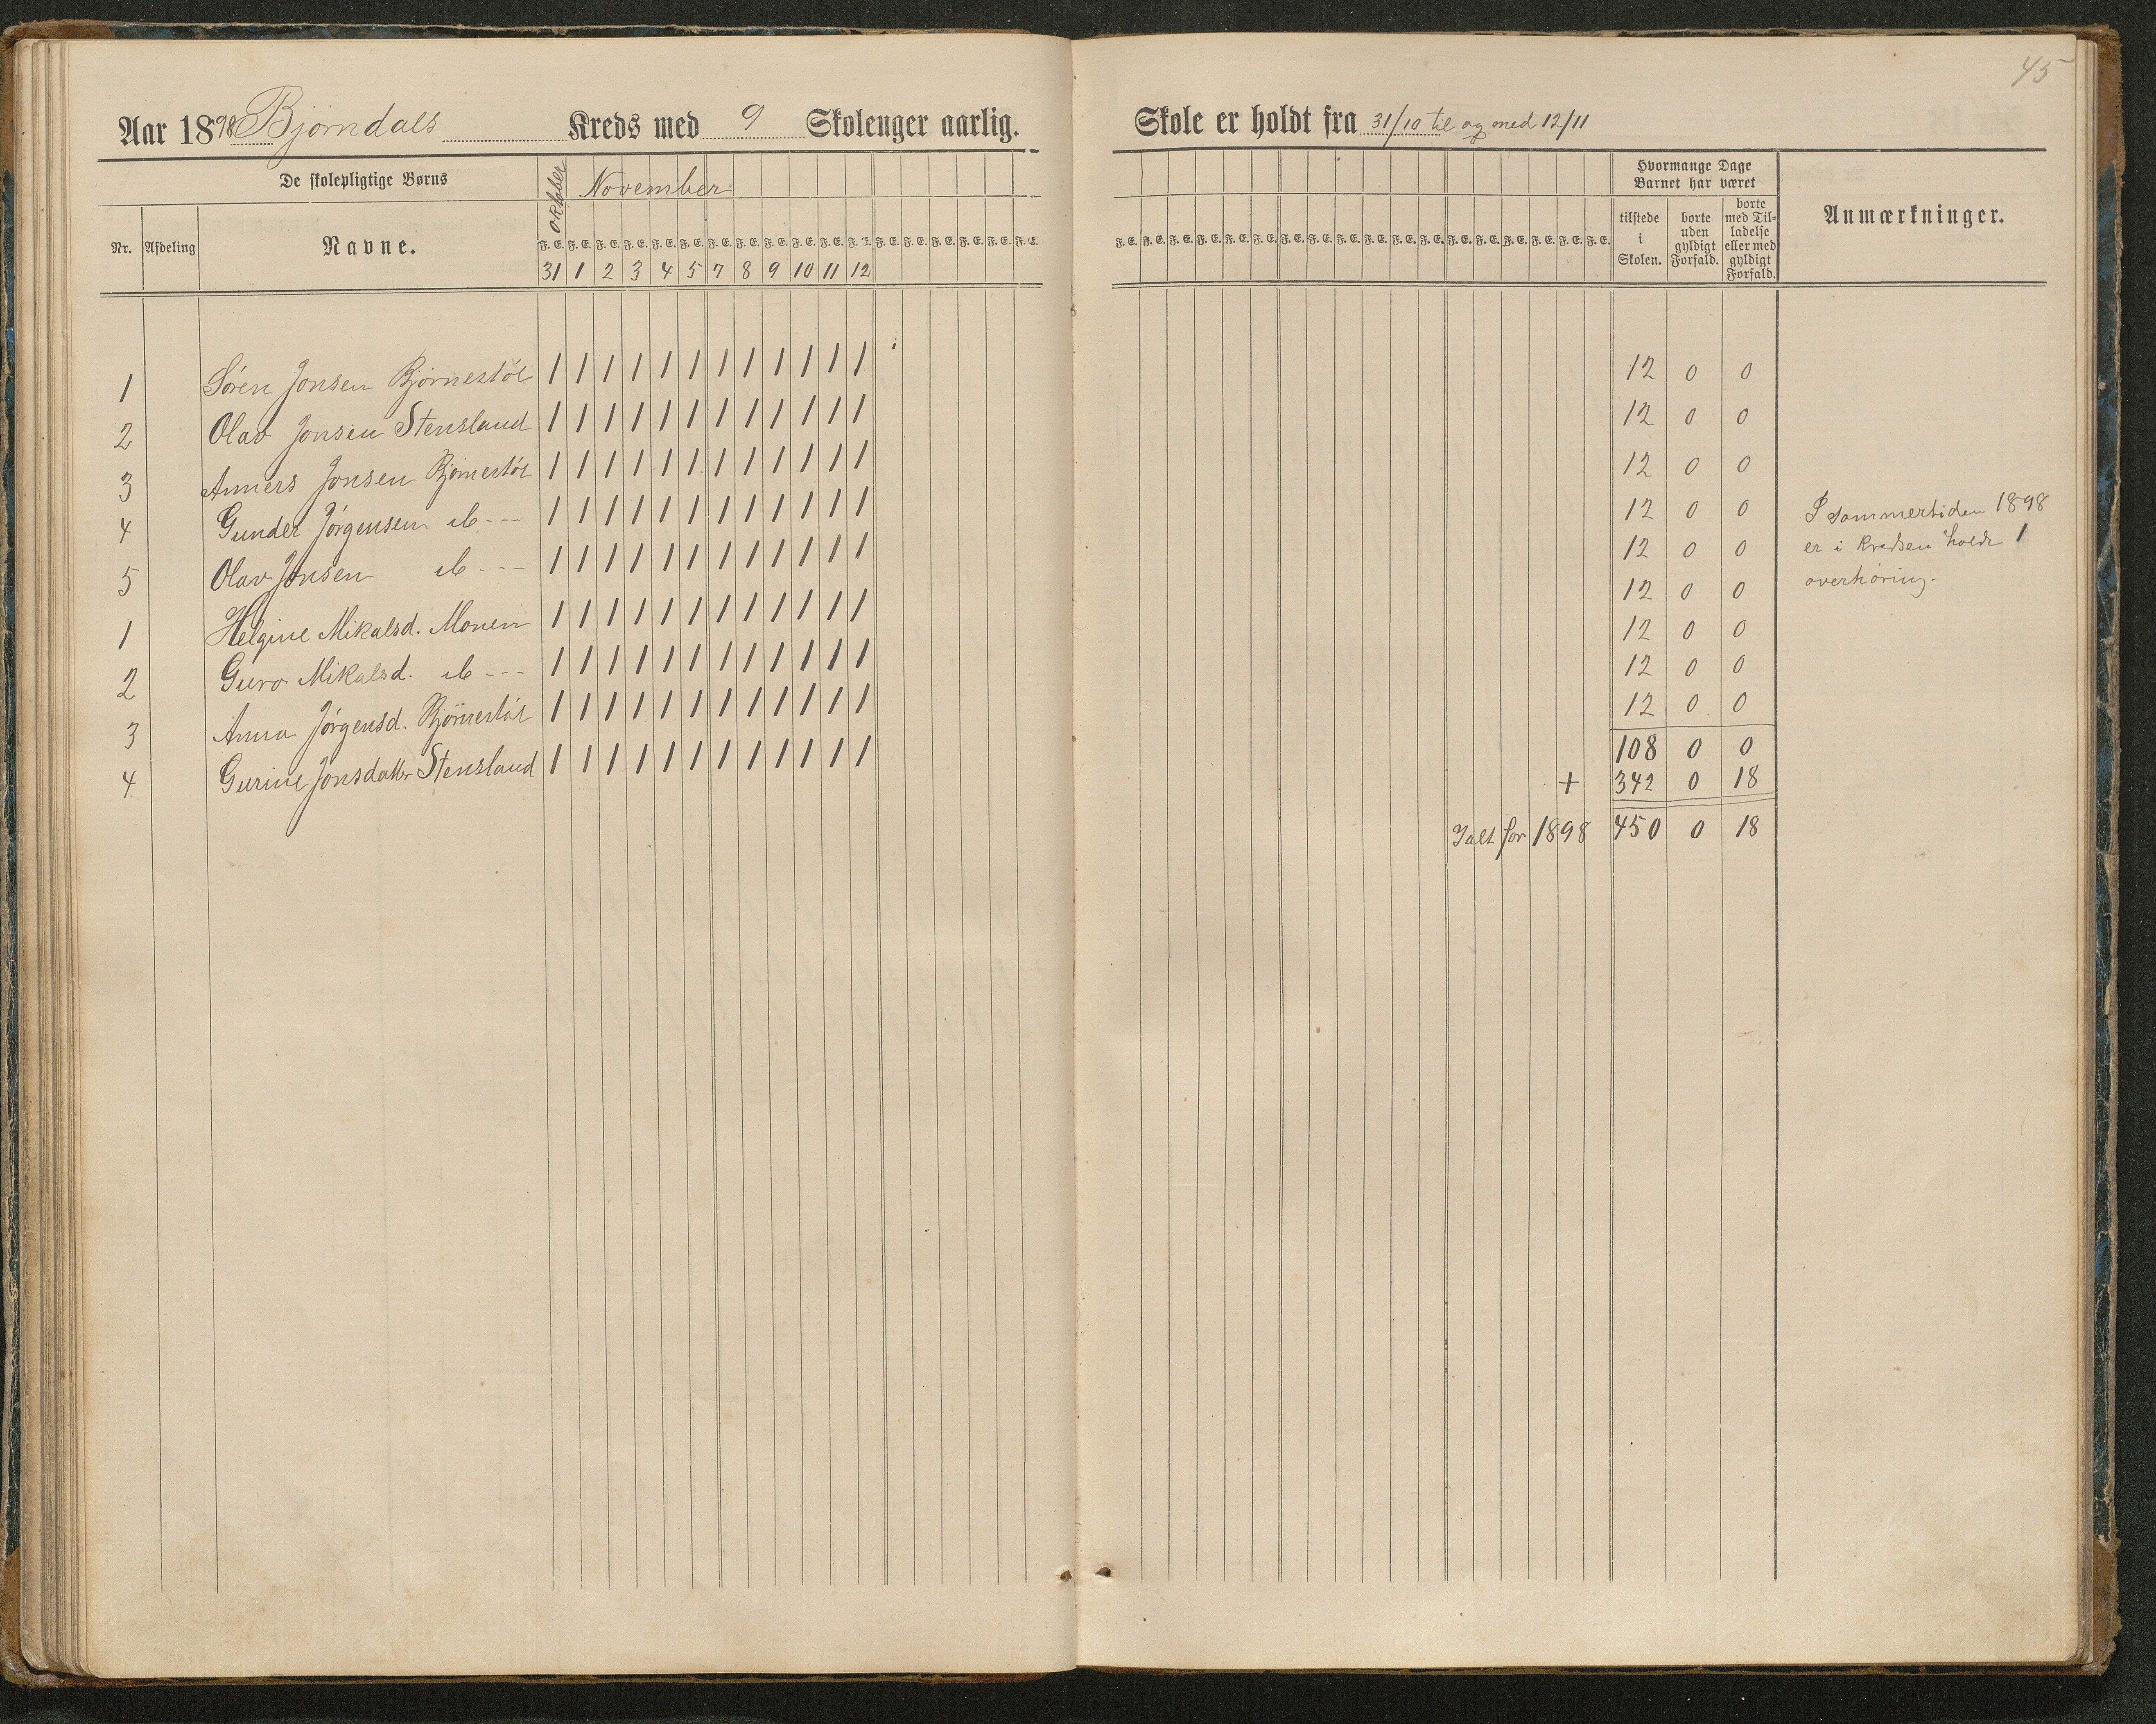 45
Aar 1898 Bjørndals Kreds med 9 Skolenger aarlig.
Skole er holdt fra 31/10 til og med 12/11
De skolepligtige Børns
Oktober November
Nr. Afdeling Navne.
F. E. F. E. F. E. F. E. F. E. F. E. F. E. F. E. F. E. F. E. F. E. F. E. F. E. F. E. F. E. F. E. F. E. F. E.
31 1 2 3 4 5 7 8 9 10 11 12
F. E. F. E. F. E. F. E. F. E. F. E. F. E. F. E. F. E. F. E. F. E. F. E. F. E. F. E. F. E. F. E. F. E. F. E.
Hvormange Dage
Barnet har været
tilstede
i
Skolen.
borte
uden
gyldigt
Forfald.
borte
med Til-
ladelse
eller med
gyldigt
Forfald.
Anmærkninger.
1 Søren Jonsen Bjørnestøl 1 1 1 1 1 1 1 1 1 1 1 1 12 0 0
2 Olav Jonsen Stensland 1 1 1 1 1 1 1 1 1 1 1 1 12 0 0
3 Anners Jonsen Bjørnestøl 1 1 1 1 1 1 1 1 1 1 1 1 12 0 0
4 Gunder Jørgensen ib --- 1 1 1 1 1 1 1 1 1 1 1 1 12 0 0
5 Olav Jonsen ib --- 1 1 1 1 1 1 1 1 1 1 1 1 12 0 0
1 Helgine Mikalsd. Monen 1 1 1 1 1 1 1 1 1 1 1 1 12 0 0
2 Guro Mikalsd. ib --- 1 1 1 1 1 1 1 1 1 1 1 1 12 0 0
3 Anna Jørgensd. Bjørnestøl 1 1 1 1 1 1 1 1 1 1 1 1 12 0 0
4 Gurine Jonsdatter Stensland 1 1 1 1 1 1 1 1 1 1 1 1 12 0 0
108 0 0
+ 342 0 18
Ialt for 1898 450 0 18
I sommertiden 1898
er i kredsen holdt 1
overhøring.